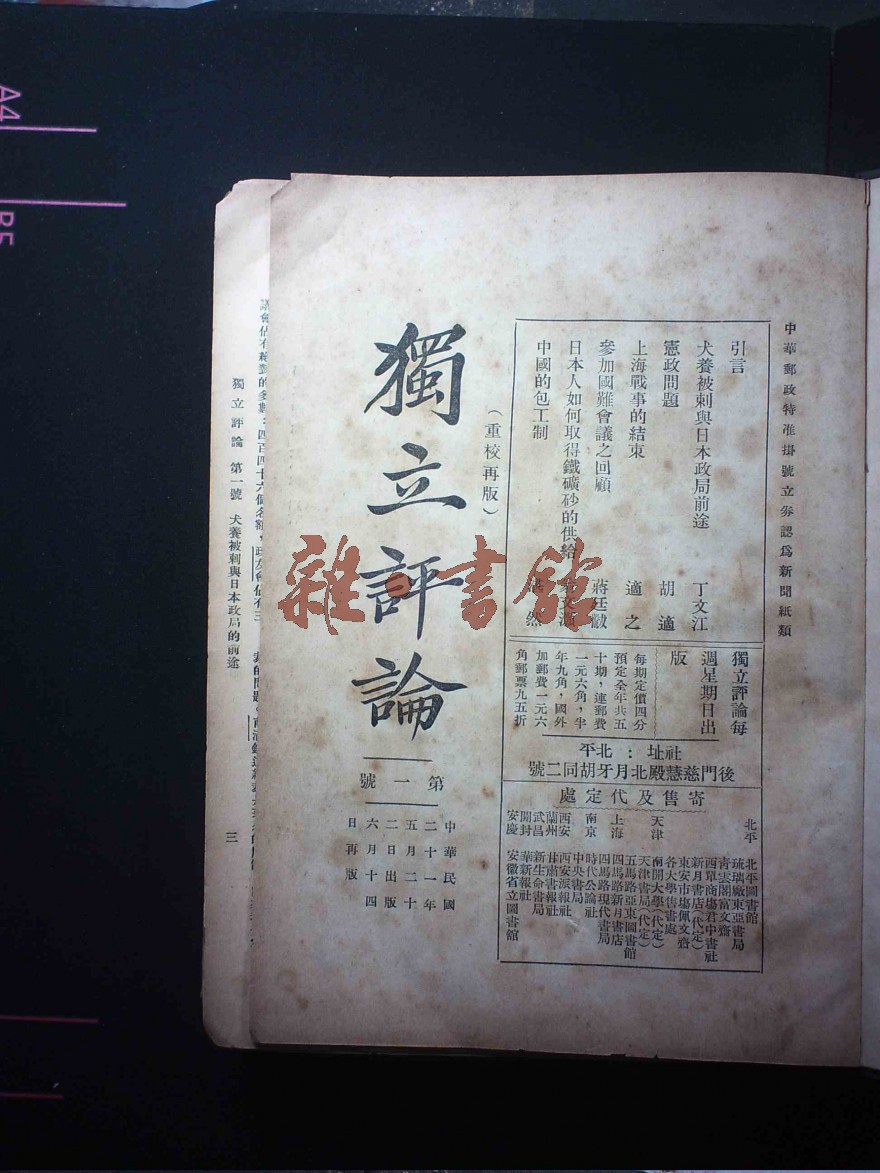 中華郵政特准掛號立券認爲新聞紙類
引言
犬養被刺與日本政局前途 丁文江
憲政問題 胡適
上海戰事的結束 適之
參加國難會議之回顧 蔣廷黻
日本人如何取得鐵礦砂的供給 翁文灝
中國的包工制 然
獨立評論每
週星期日出
版
每期定價四分
預定全年共五
十期，連郵費
一元六角，半
年九角，國外
加郵費一元六
角郵票九五折
社址：北平
後門慈慧殿北月牙胡同二號
寄售及代定處
北平 北平圖書館
琉璃廠東亞書局
青雲閣富文齋
西單商塲君中書社
新月書店(代定)
東安市塲佩文齋
各大學售書處
天津 南開大學(代定)
天津書局(代定)
五馬路亞東圖書館
上海 四馬路新月書店
四馬路現代書局
南京 時代公論社
中央書局
西安 西安派報社
蘭州 甘肅書報社
武昌 新生命書局
開封 華新報社
安慶 安徽省立圖書館
(重校再版)
獨立評論
第一號
中華民國
二十一年
五月二十
二日出版
六月十四
日再版
雜·書館
議會佔有絕對的多數：四百四十六個名額，政友會佔有三
獨立評論 第一號 犬養被刺與日本政局的前途
三
A4
B5